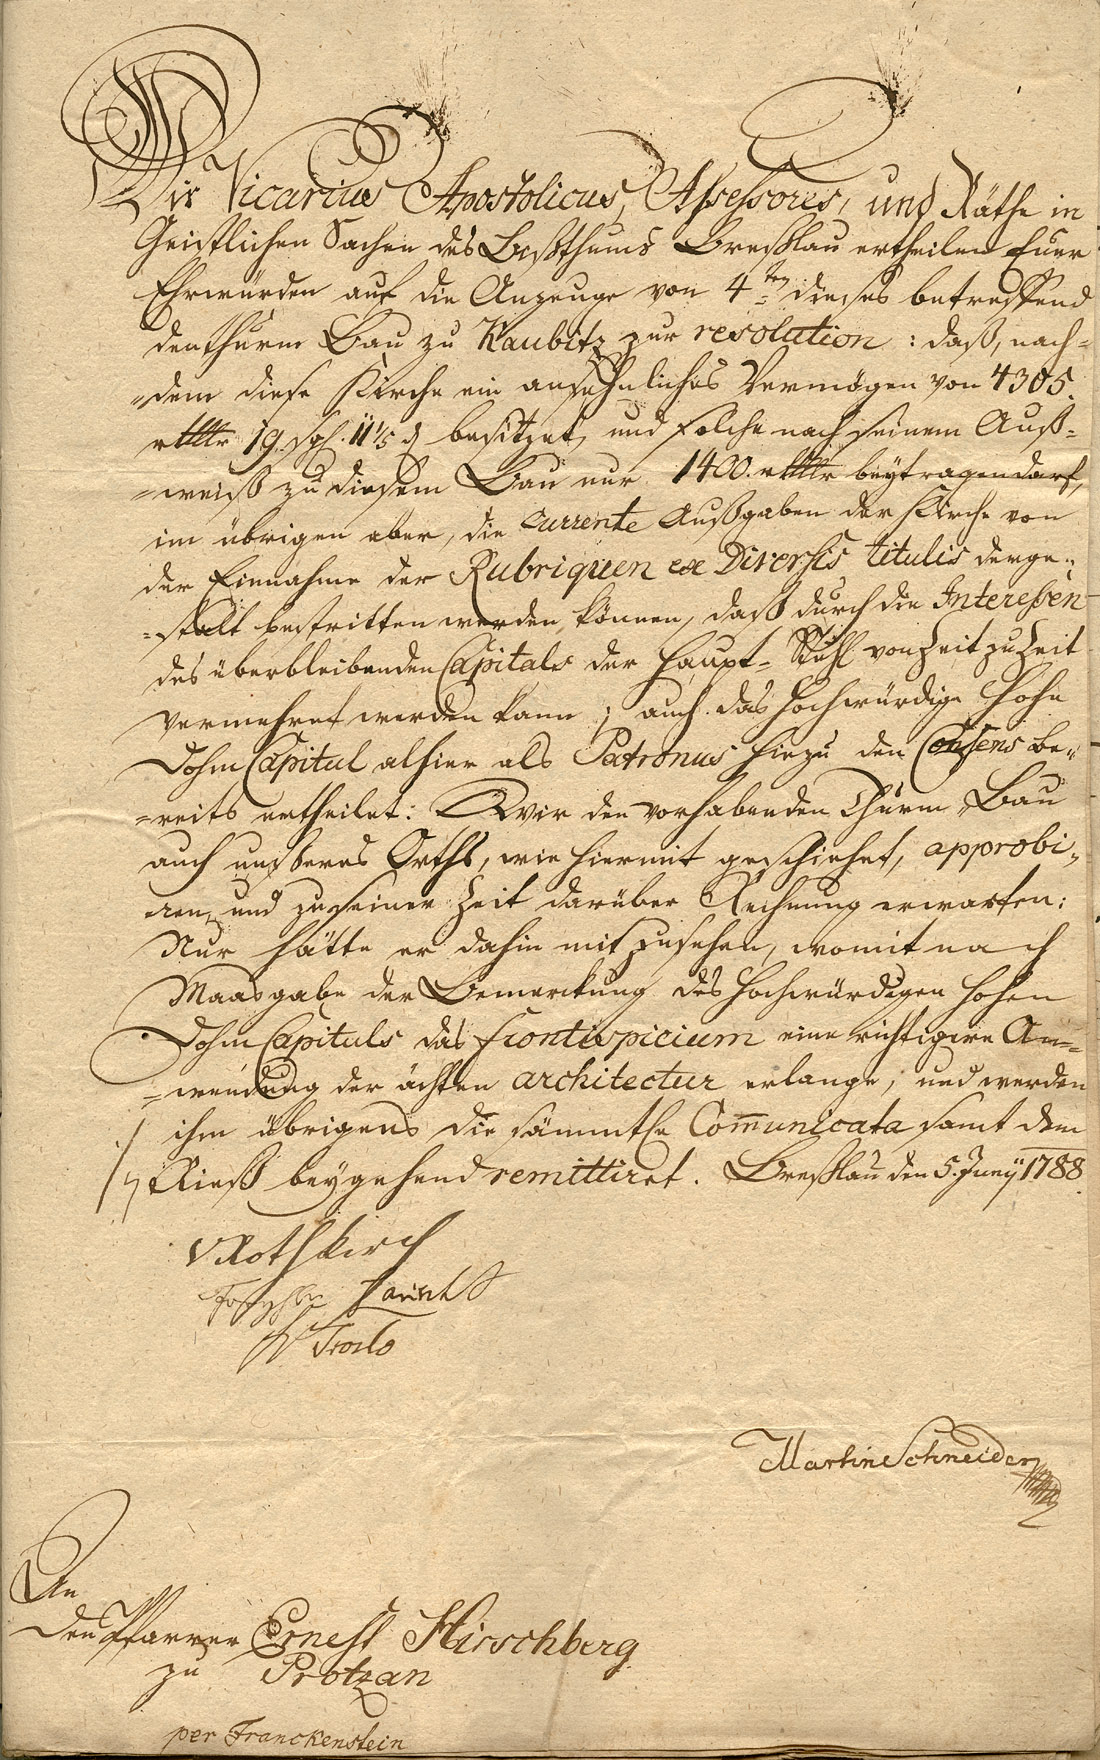 Wir Vicarius Apostolicus, Assessores, und Räthe in
Geistlichen Sachen des Bißthums Breßlau ertheilen Euer
Ehrwürden auf die Anzeuge von 4ten dieses betreffend
den thurm Bau zu Kaubitz zur resolution: daß, nach=
=dem diese Kirche ein ansehnliches Vermögen von 4305.
rthlr 19. sgl. 11 1/5 d besitzet, und solche nach seinem Auß=
=weiß zu diesem Bau nur 1400. rthlr beytragen darf,
im übrigen aber, die Currente Außgaben der Kirche von
der Einnahme der Rubriquen ex Diversis titulis derge=
=stalt bestritten werden können, daß durch die Interessen
des überbleibenden Capitals der Haupt=Stuhl von Zeit zu Zeit
vermehret werden kann; auch das Hochwürdige Hohe
Dohm Capitul alhier als Patronus hiezu den Consens be=
=reits ertheilet: Wir den vorhabenden Thurm Bau
auch unseres Orths, wie hiermit geschiehet, approbi=
ren, und zu seiner Zeit darüber Rechnung erwarten:
Nur hätte er dahin mit zusehen, womit nach
Maasgabe der Bemerckung des Hochwürdigen Hohen
Dohm Capituls das frontispicium eine richtigere An=
=wendung der ächten architectur erlange, und werden
ihm übrigens die sämmtle Communicata samt dem
Rieß beygehend remittiret. Breßlau den 5. Juny 1788.
v Rothkirch
v Troilo
Martin Schneider
An
den Pfarrer Ernest Hirschberg
zu Protzan
per Franckenstein